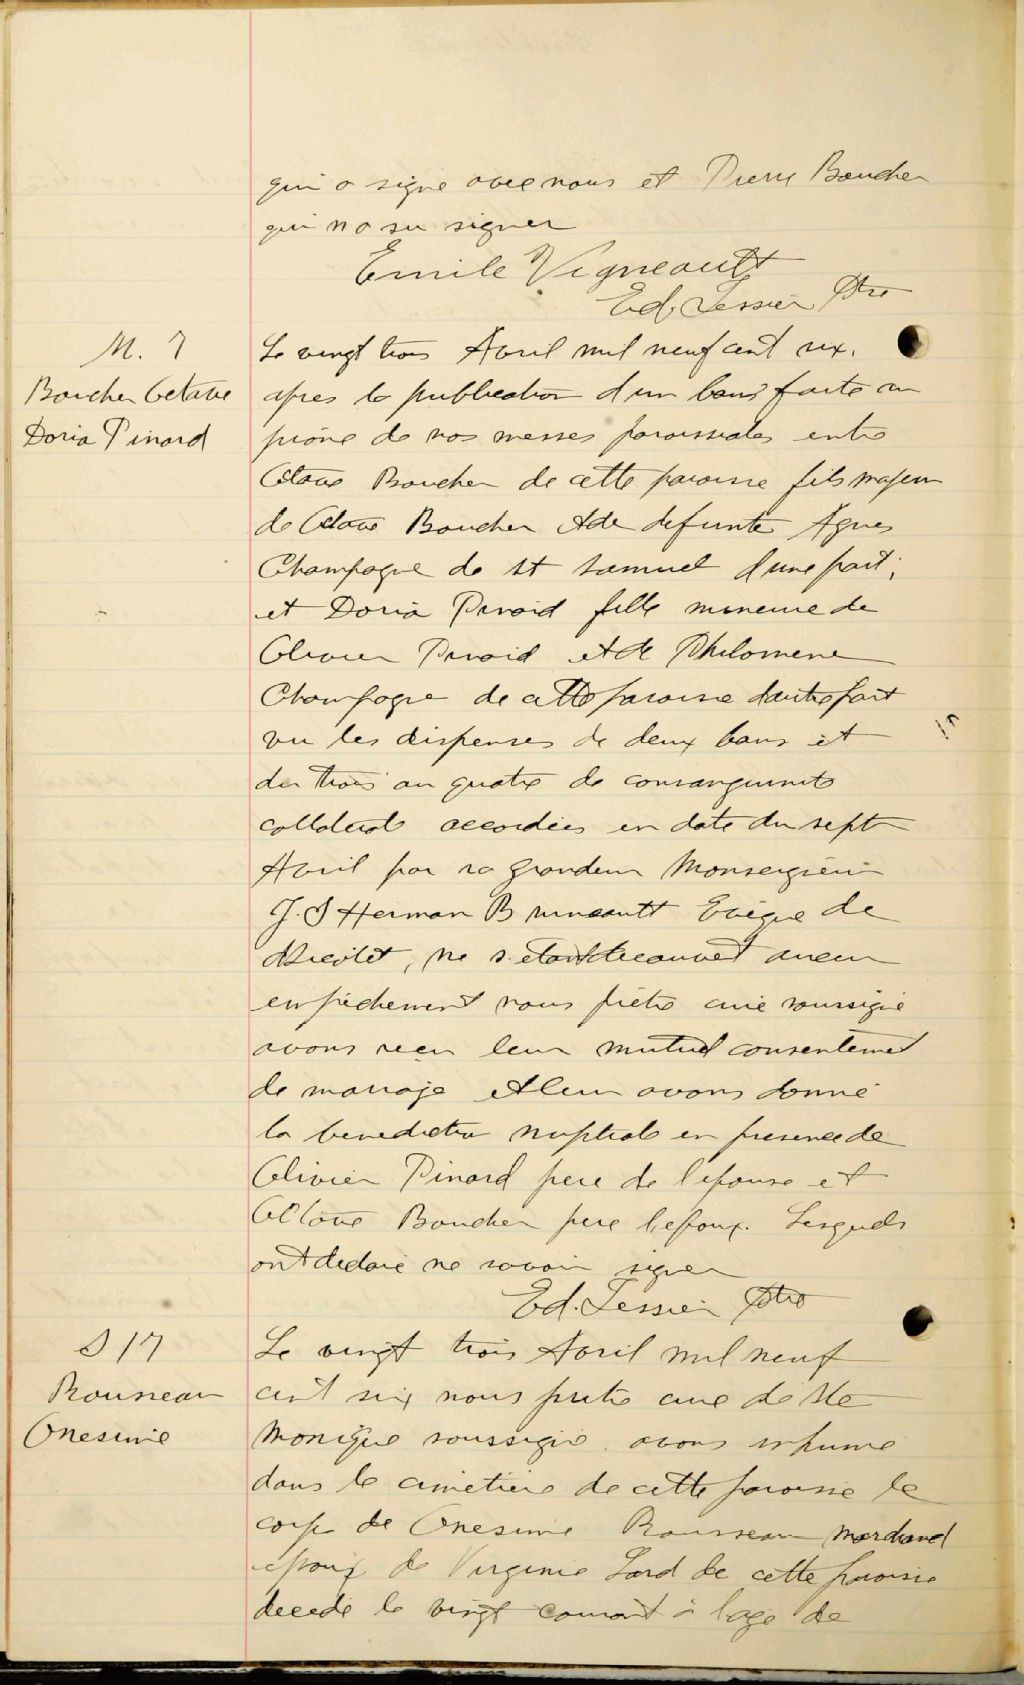 qui a signe avec nous et Pierre Boucher
qui na su signer
Emile Vigneault
Ed. Tessier Ptre
M. 7
Boucher Octave
Doria Pinard
Le vingt trois Avril mil neuf cent six.
apres la publication d'un bans faite au
prône de nos messes paroissiales entre
Octave Boucher de cette paroisse fils majeur
de Octave Boucher et de defunte Agnes
Champagne de St Samuel d'une part;
et Doria Pinard fille mineure de
Olivier Pinard et de Philomene
Champagne de cette paroisse dautre part
vu les dispenses de deux bans et
du trois au quatre de consanguinite
collateral accordées en date du sept
Avril par sa grandeur Monseigneur
J. S Herman Bruneault Evêque de
Nicolet, ne s'etant decouvert aucun
empêchement nous prêtre curé soussigné
avons reçu leur mutuel consentement
de mariage et leur avons donné
la benediction nuptiale en presence de
Olivier Pinard pere de l'epouse et
Octave Boucher pere l'epoux. Lesquels
ont declaré ne savoir signer
Ed. Tessier Ptre
S 17
Rousseau
Onesime
Le vingt trois Avril mil neuf
cent six nous pretre curé de Ste
Monique soussigné avons inhumé
dans le cimetière de cette paroisse le
corps de Onesime Rousseau marchand
epoux de Virginie Lord de cette paroisse
decedé le vingt courant à lage de